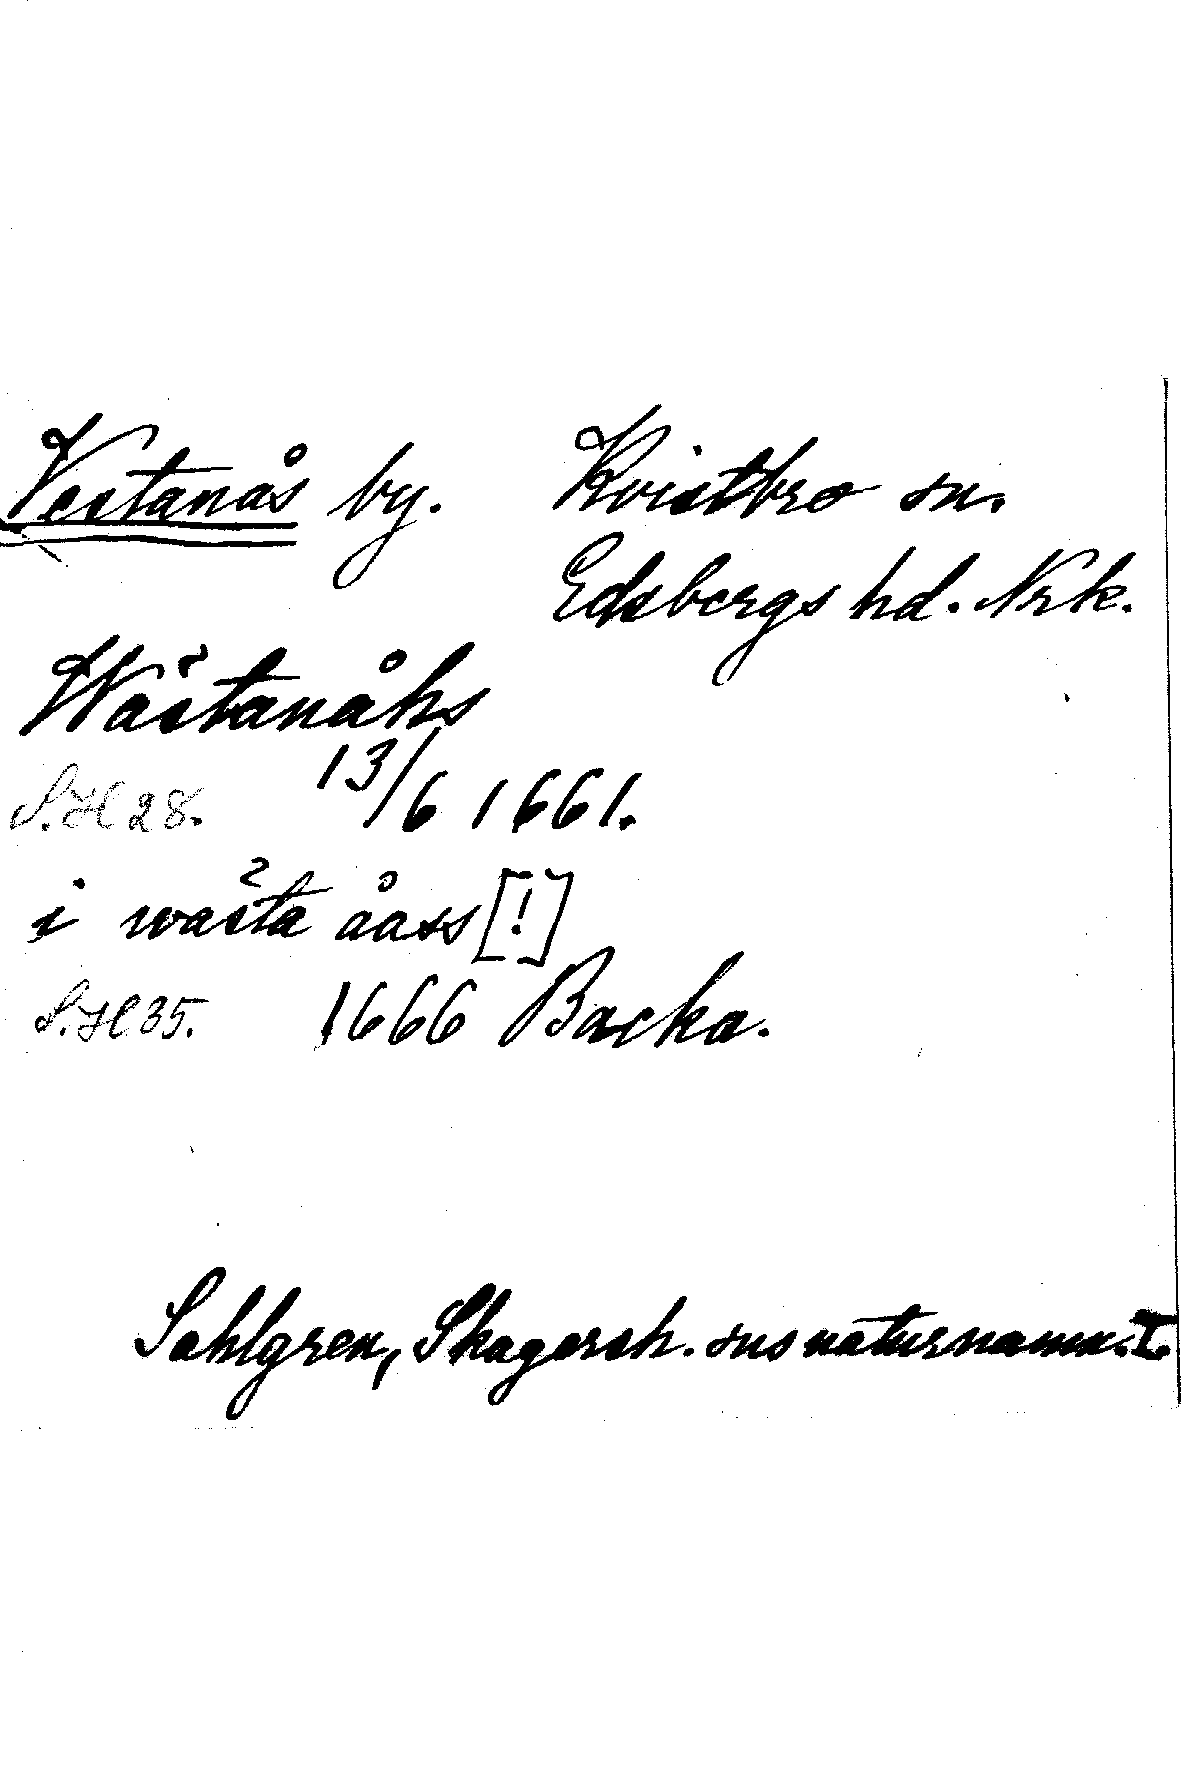 Vestanås by. Kvistbro sn.
Edsbergs hd. Nrk.
Wästanåhs
S.H 28. 13/6 1661.
i wästa åass [!]
S.H 35. 1666 Backa.
Sahlgren, Skagersh. sns naturnamn. I.